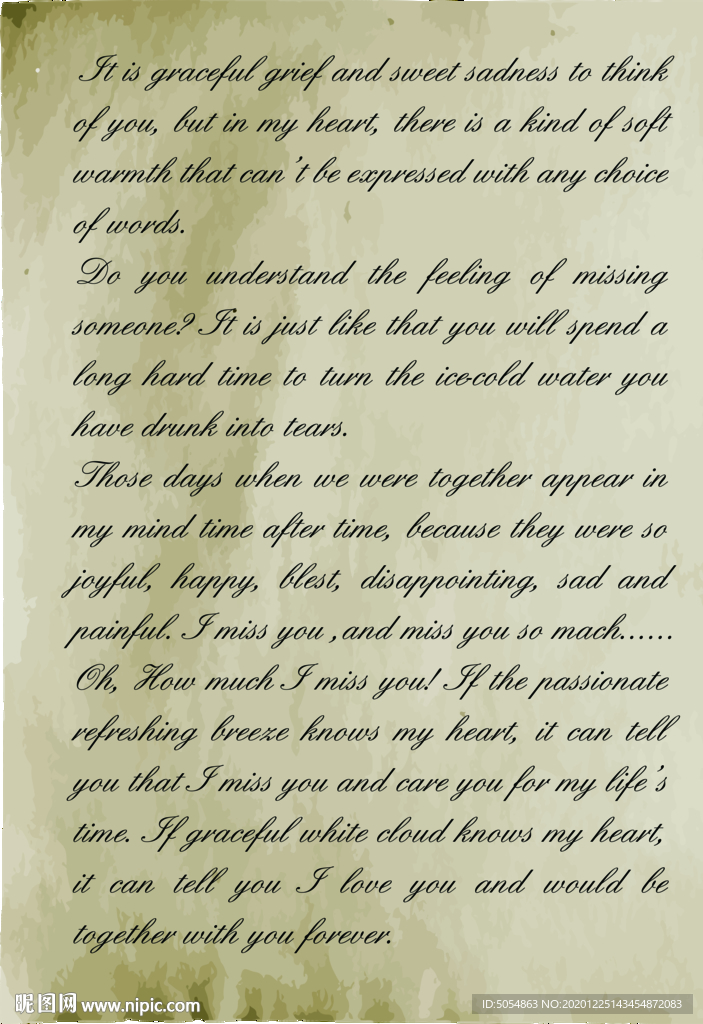 It is graceful grief and sweet sadness to think
of you, but in my heart, there is a kind of soft
warmth that can't be expressed with any choice
of words.
Do you understand the feeling of missing
someone? It is just like that you will spend a
long hard time to turn the ice-cold water you
have drunk into tears.
Those days when we were together appear in
my mind time after time, because they were so
joyful, happy, blest, disappointing, sad and
painful. I miss you ,and miss you so mach......
Oh, How much I miss you! If the passionate
refreshing breeze knows my heart, it can tell
you that I miss you and care you for my life's
time. If graceful white cloud knows my heart,
it can tell you I love you and would be
together with you forever.
昵图网 www.nipic.com
ID:5054863 NO:20201225143454872083